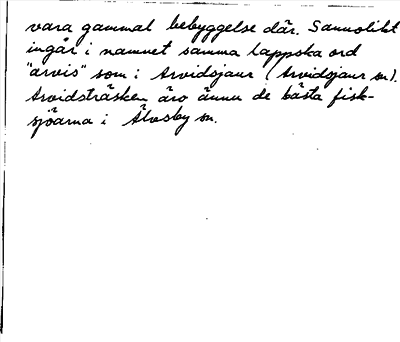 vara gammal bebyggelse där. Sannolikt
ingår i namnet samma lappska ord
"arvis" som i Arvidsjaur (Arvidsjaur sn).
Arvidsträsken äro ännu de bästa fisk-
sjöarna i Älvsby sn.